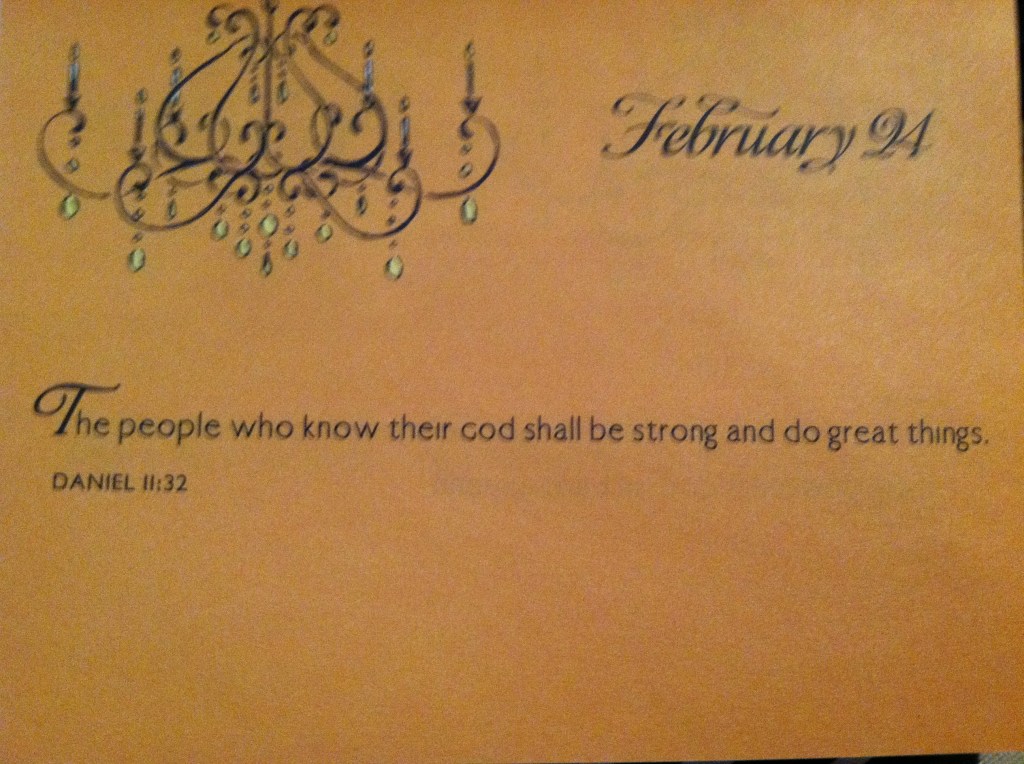 February 24
The people who know their God shall be strong and do great things.
DANIEL 11:32